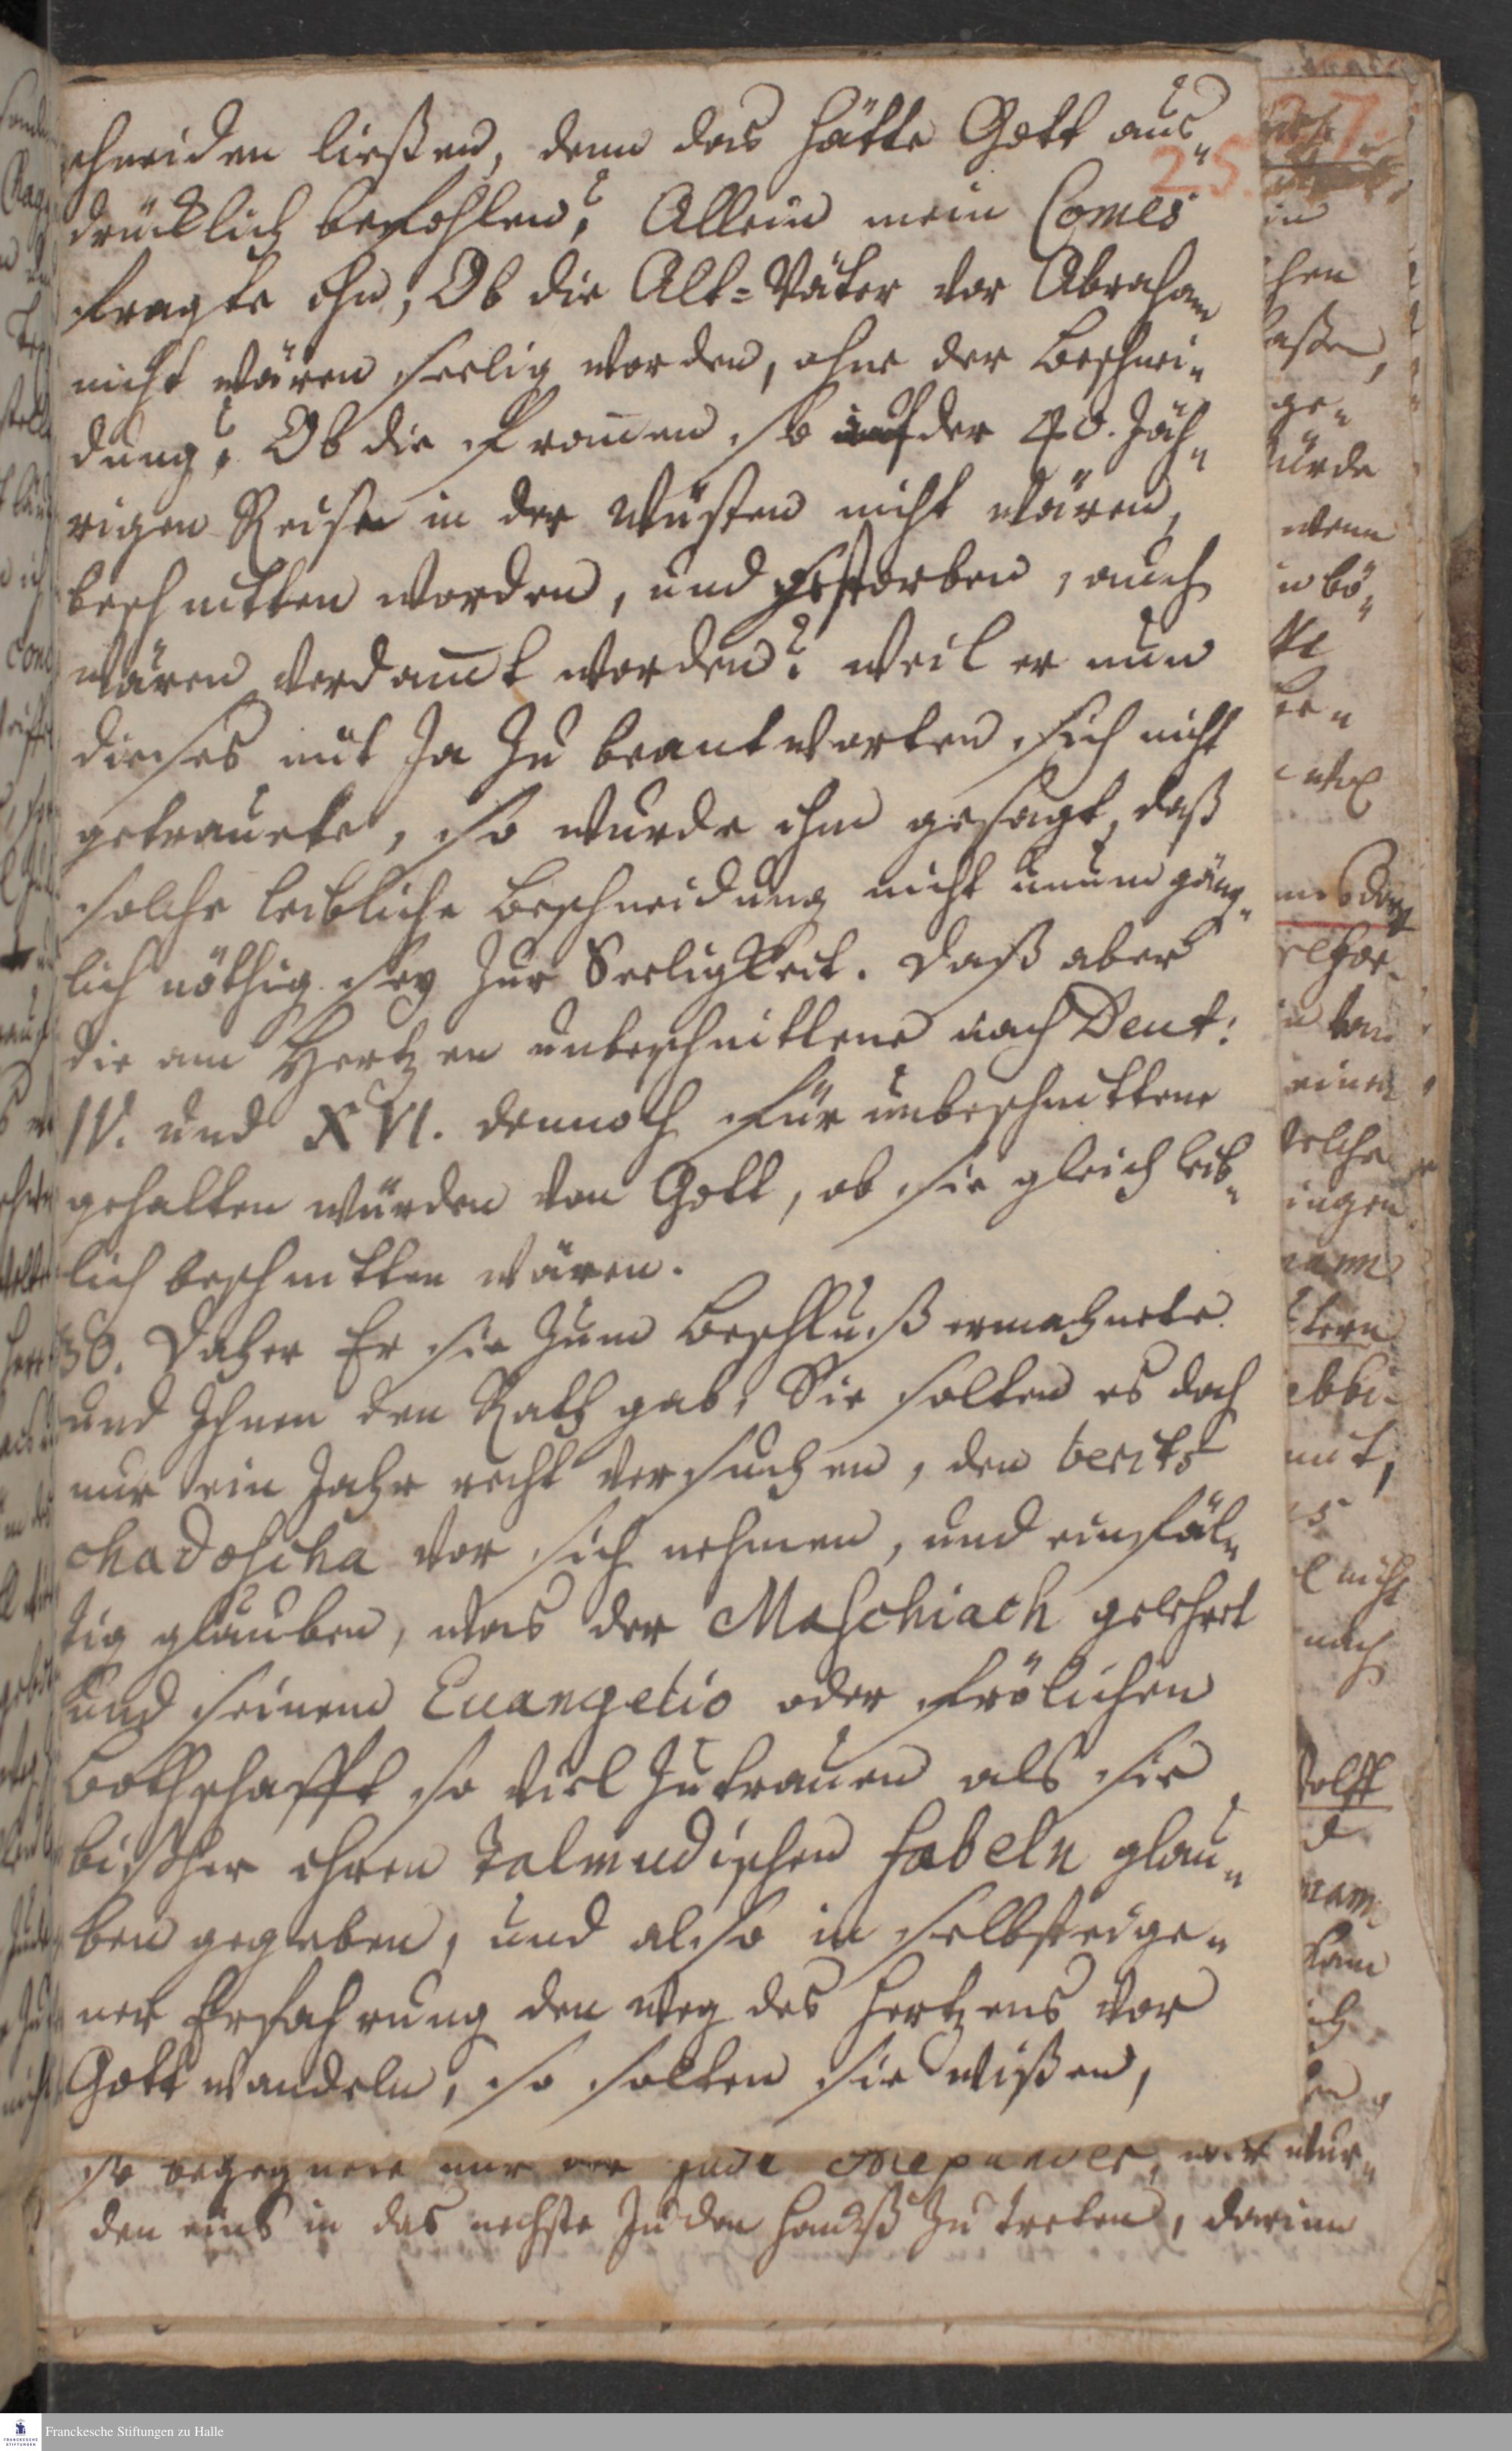 schneiden ließen, denn das hätte Gott aus„
25.
drücklich befohlen? Allein mein Comes
fragte ihn, Ob die Alt-Väter vor Abraham
nicht wären seelig worden, ohne der Beschnei„
dung? Ob die Frommen so auf der 40. Jäh„
rigen Reise in der Wüsten nicht wären
beschnitten worden, und gestorben, auch
wären verdamt worden? weil er nun
dieses mit Ja zu beantworten sich nicht
getrauete, so wurde ihm gesagt, daß
solche leibliche Beschneidung nicht unumgäng„
lich nöthig sey zur Seeligkeit. Daß aber
die am Hertzen unbeschnittene nach Deut:
IV. und XVI. dennoch für unbeschnittene
gehalten würden von Gott, ob sie gleich leib„
lich beschnitten wären.
30. Daher Er sie zum Beschluß ermahnete
und Ihnen den Rath gab, Sie solten es doch
nur ein Jahr recht versuchen, den berits
chadoscha vor sich nehmen, und einfäl„
tig glauben, was der Maschiach gelehret
und seinem Euangelio oder frölichen
Bothschafft so viel zutrauen als sie
bißher ihren Talmudischen fabeln glau„
ben gegeben, und also in selbsteige„
ner Erfahrung den Weg des Hertzens vor
Gott wandeln, so solten sie wißen,
so begegnete mir der Jude wir wur„
den eins in das nechste Juden Hauß zu treten, darinn
27.
in
hen
aßen,
ge„
ürde
wenn
n bö„
mesdorf
einen
welche
ingen
mann
tern
ebbi
mit,
nicht
nach
wolff
mann
kam
Franckesche Stiftungen zu Halle